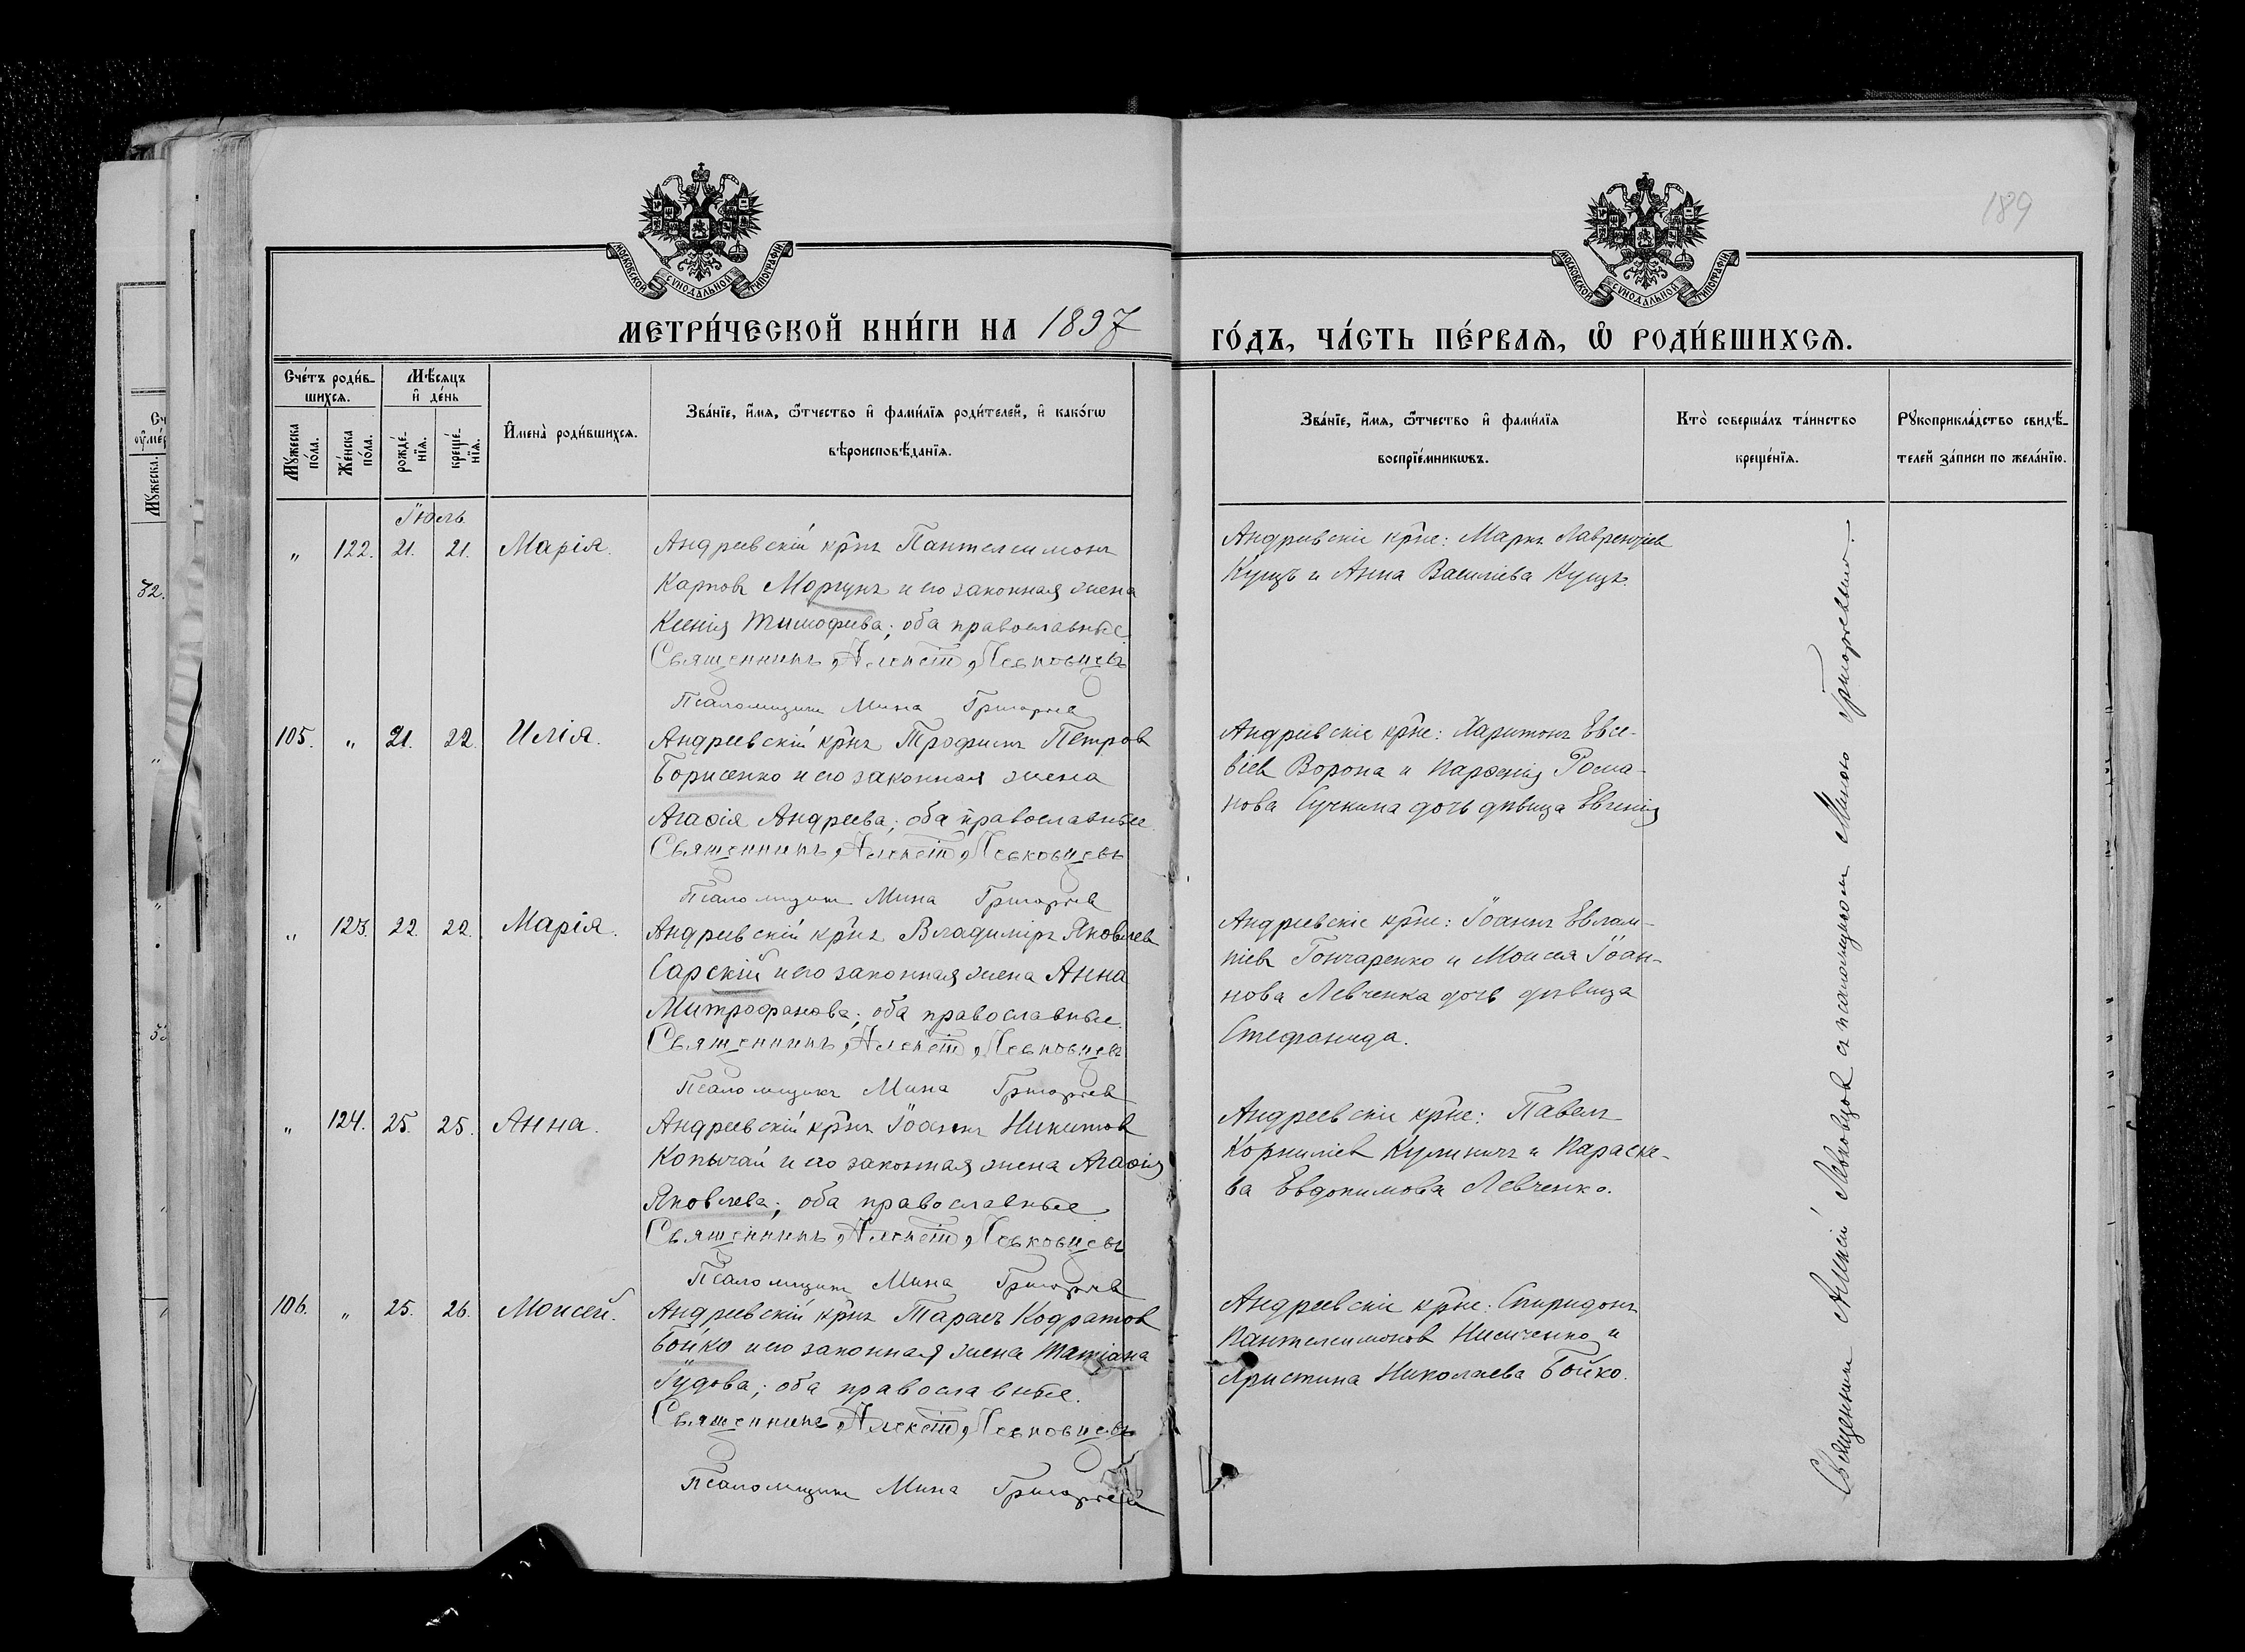 189
МОСКОВСКОЙ СУНОДАЛЬНОЙ ТИПОГРАФІИ
МОСКОВСКОЙ СУНОДАЛЬНОЙ ТИПОГРАФІИ
МЕТРИ́ЧЕСКОЙ КНИ́ГИ НА 1897 ГО́ДЪ, ЧА́СТЬ ПЕ́РВАѦ, Ѡ РОДИ́ВШИХСѦ.
Сче́тъ роди́в-
шихсѧ.
Мꙋ́жеска по́ла.
Же́нска по́ла.
Мѣ́сѧцъ
и де́нь
рожде́-нїѧ.
креще́-нїѧ.
Имена̀ роди́вшихсѧ.
Зва́нїе, и́мѧ, ѻ́тчество и фами́лїѧ роди́телей, и како́гѡ
вѣроисповѣ́данїѧ.
Зва́нїе, и́мѧ, ѻ́тчество и фами́лїѧ
воспрїе́мникѡвъ.
Кто̀ соверша́лъ та́инство
креще́нїѧ.
Рꙋкоприкла́дство свидѣ́-
телей за́писи по жела́нїю.
Іюль.
„ 122. 21. 21. Марія.
Андреевскій крнъ Пантелеимонъ
Карповъ Моргунъ и его законная жена
Ксенія Тимофеева; оба православные.
Священникъ Алексій Левковцевъ
Псаломщикъ Мина Григорьев
Андреевскіе крне: Маркъ Лаврентіев
Кущъ и Анна Василіева Кущъ.
105. „ 21. 22. Илія.
Андреевскій крнъ Трофимъ Петров
Борисенко и его законная жена
Агаѳія Андреева; оба православные.
Священникъ Алексій Левковцевъ
Псаломщикъ Мина Григорьев
Андреевскіе крне: Харитонъ Евсе-
віев Ворона и Парѳенія Рома-
нова Сучкина дочь дѣвица Евгенія
„ 123. 22. 22. Марія.
Андреевскій крнъ Владиміръ Яковлев
Сарскій и его законная жена Анна
Митрофанова; оба православные.
Священникъ Алексій Левковцевъ
Псаломщикъ Мина Григорьев
Андреевскіе крне: Іоаннъ Евлам-
піев Гончаренко и Моисея Іоан-
нова Левченка дочь дѣвица
Стефанида.
„ 124. 25. 25. Анна.
Андреевскій крнъ Іоаннъ Никитов
Копычай и его законная жена Агаѳія
Яковлева; оба православные.
Священникъ Алексій Левковцевъ
Псаломщикъ Мина Григорьев
Андреевскіе крне: Павелъ
Корниліев Кулиничъ и Параске-
ва Евдокимова Левченко.
106. „ 25. 26. Моисей.
Андреевскій крнъ Тарасъ Кодратов
Бойко и его законная жена Татіана
Іудова; оба православные.
Священникъ Алексій Левковцевъ
Псаломщикъ Мина Григорьев
Андреевскіе крне: Спиридонъ
Пантелеимонов и
Христина Николаева Бойко.
Священник Алексій Левковцов съ псаломщиком Миною Григорьевым.
Мꙋжеска.
32.